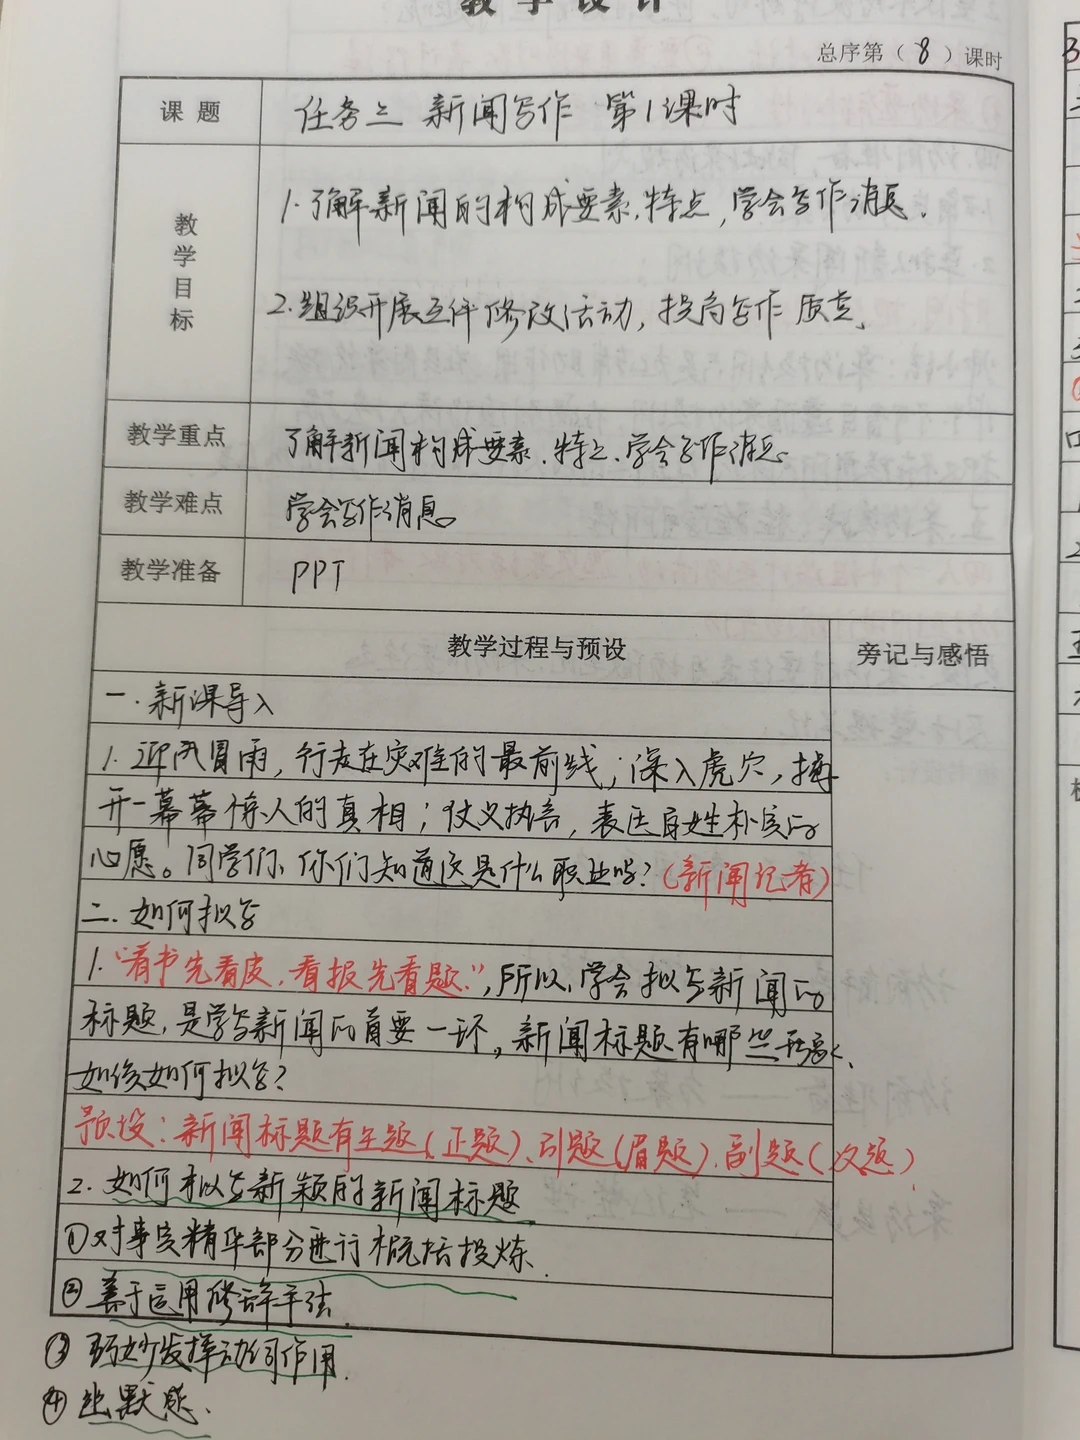 教学设计
总序第（8）课时
课题 任务三 新闻写作 第1课时
教学目标
1.了解新闻的构成要素、特点，学会写作消息.
2.组织开展互评修改活动，提高写作质量.
教学重点 了解新闻构成要素、特点、学会写作消息.
教学难点 学会写作消息。
教学准备 PPT
教学过程与预设 旁记与感悟
一.新课导入
1.迎风冒雨，行走在灾难的最前线；深入虎穴，揭
开一幕幕惊人的真相；仗义执言，表达百姓朴实的
心愿。同学们、你们知道这是什么职业吗？（新闻记者）
二.如何拟写
1.“看书先看皮，看报先看题.”，所以，学会拟写新闻的
标题，是学写新闻的首要一环，新闻标题有哪些形式
如何拟写？
预设：新闻标题有主题（正题）、引题（眉题）、副题（次题）
2.如何拟写新颖的新闻标题
①对事实精华部分进行概括提炼.
②善于运用修辞手法.
③巧妙发挥动词作用.
④幽默感.